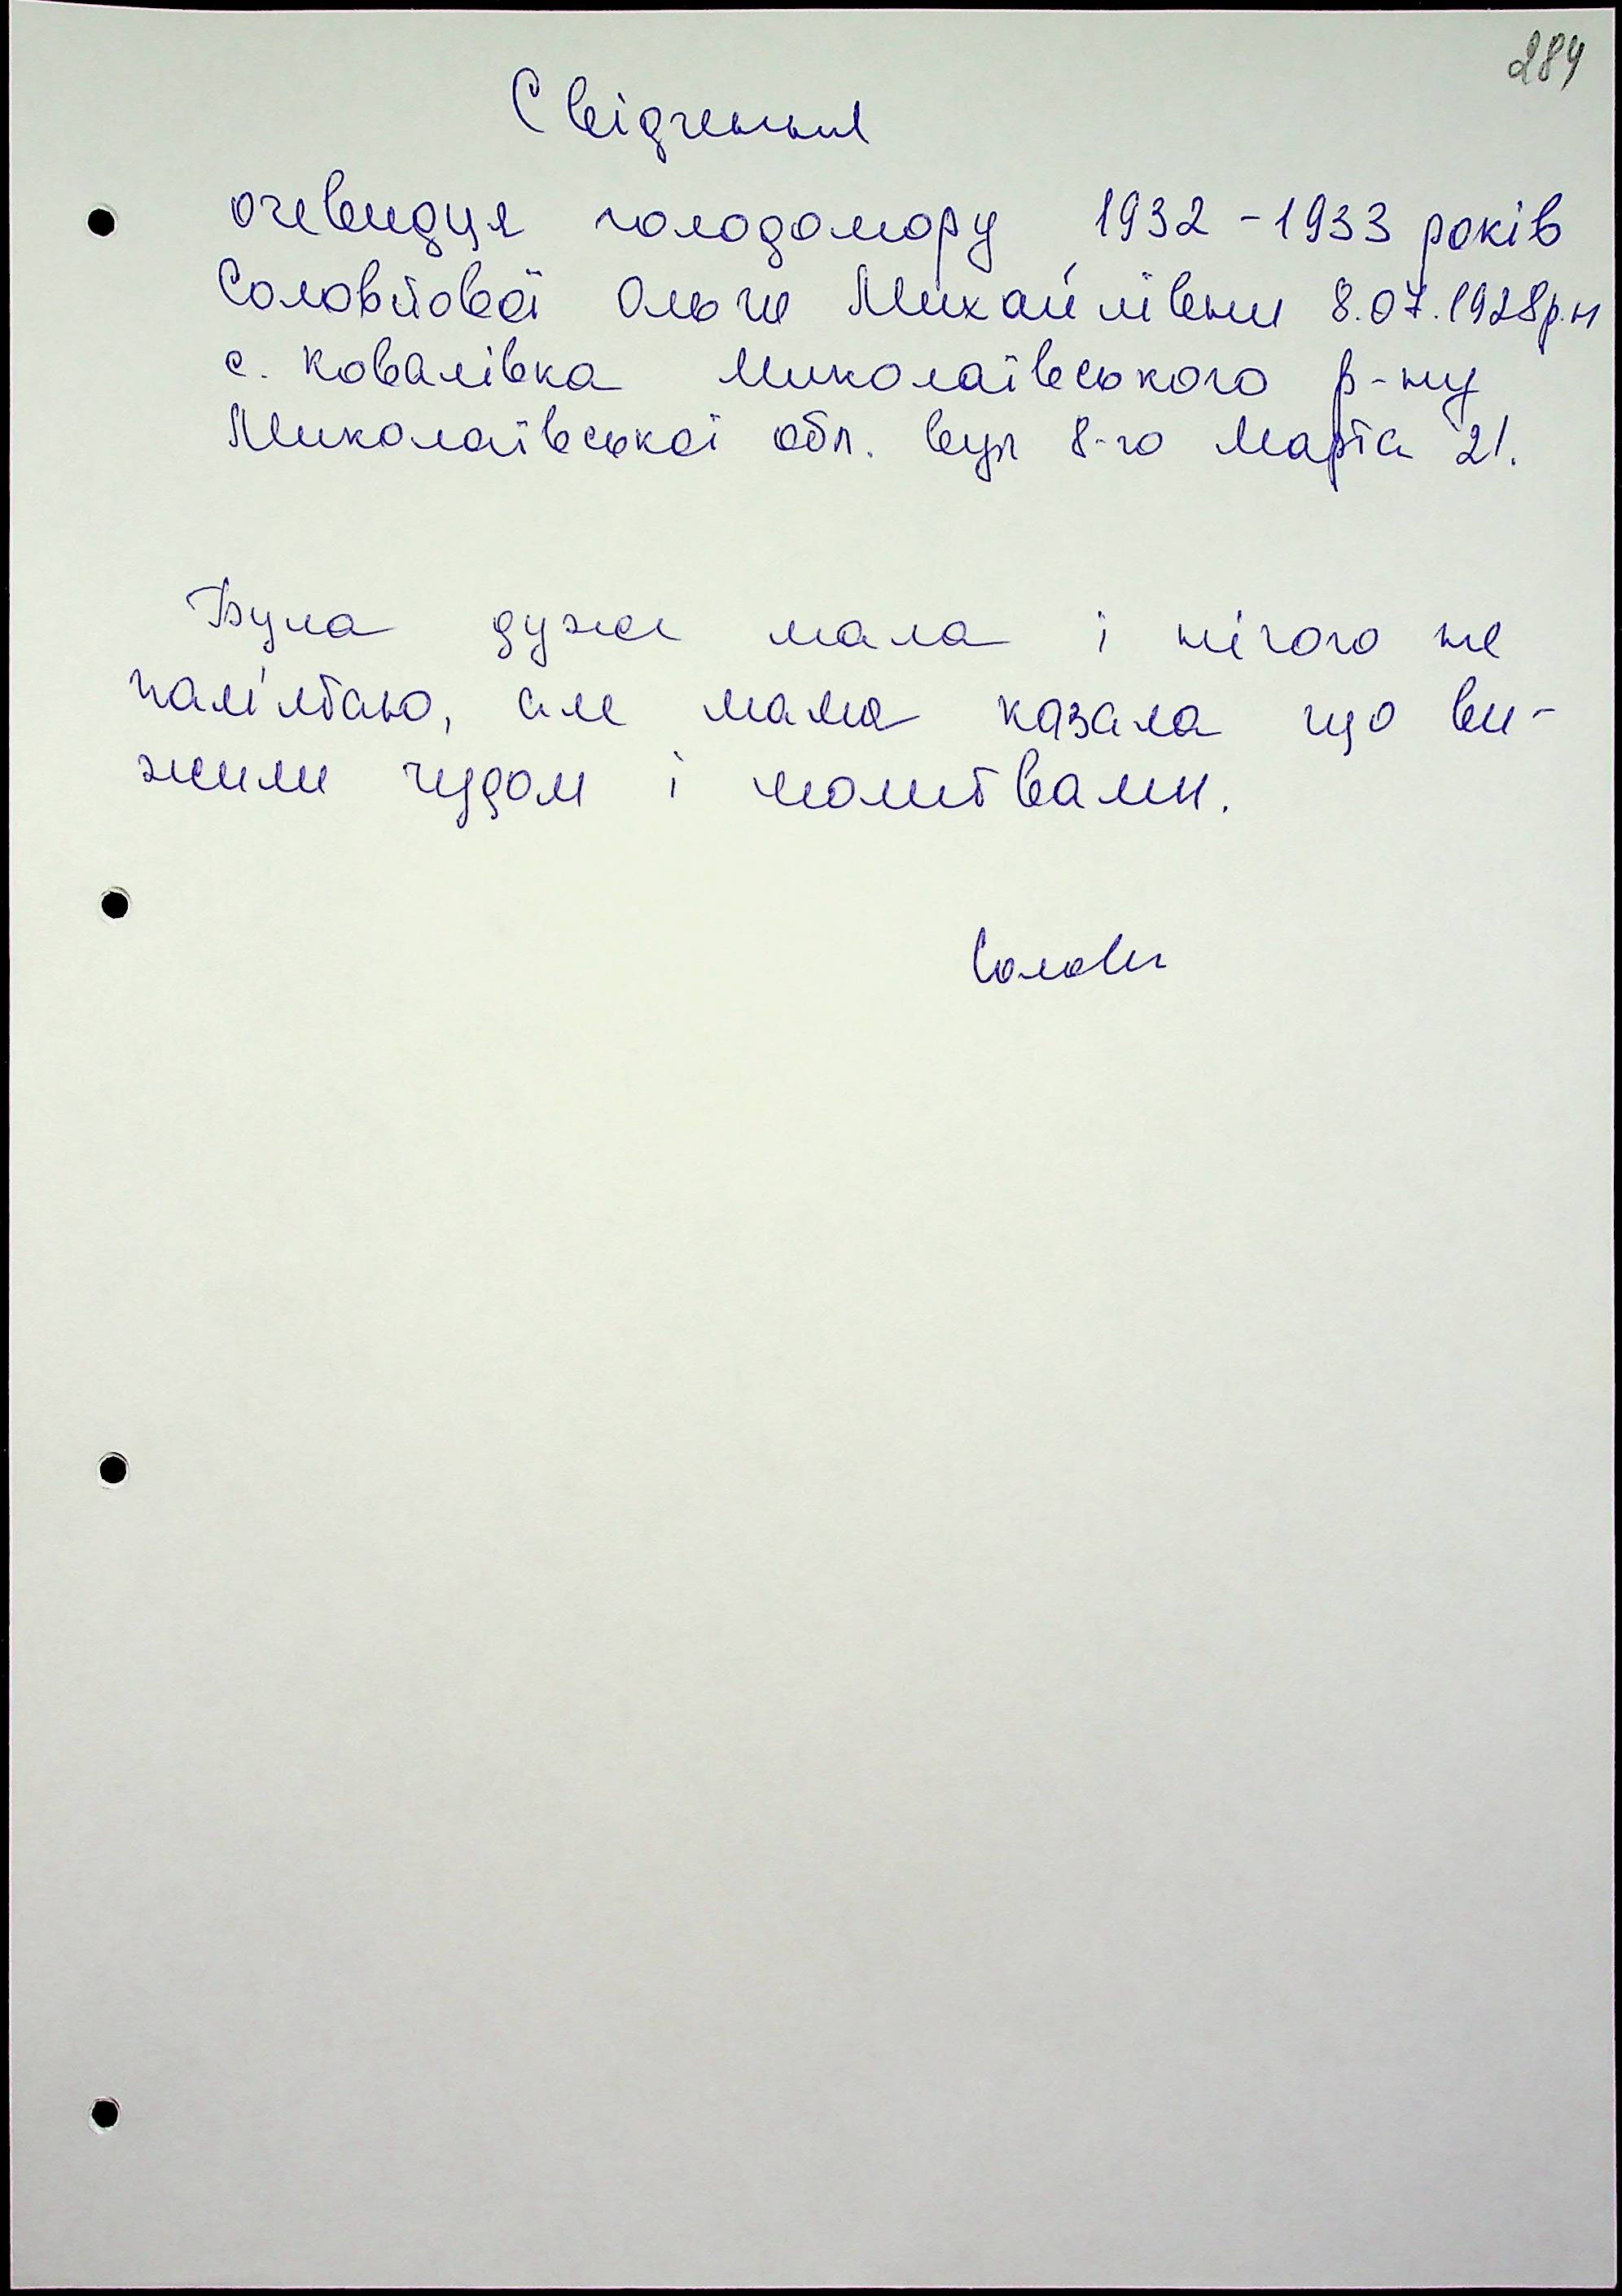 284
Свідчення
очевидця голодомору 1932 - 1933 років
Соловйової Ольги Михайлівни 8.07.1928р.н
с. Ковалівка Миколаївського р-ну
Миколаївської обл. вул 8-го Марта 21.
Була дуже мала і нічого не
пам'ятаю, але мама казала що ви-
жили чудом і молитвами.